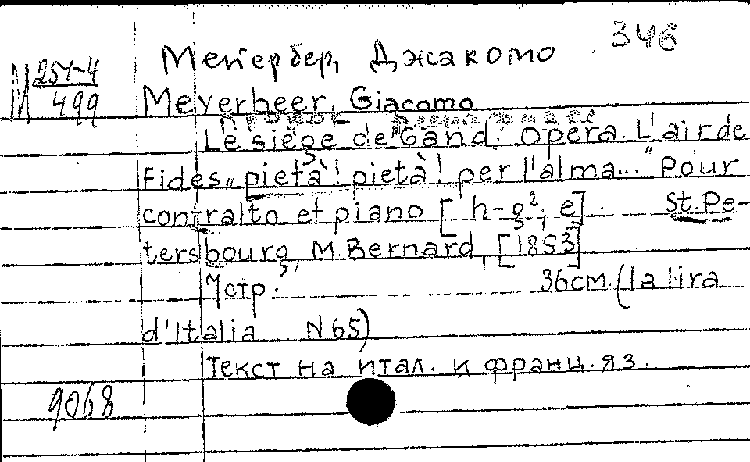 346
Мейербер, Джакомо
М 257-4
499
Meyerbeer, Giacomo
Le siège de "Gand." Opera. L'air de
Fidès „pietà! pietà! per l'alma..." Pour
contralto et piano [h-g²; e]. St. Pe-
tersbourg, M. Bernard, [1853]
7 стр. 36 см. (la lira
d'Italia N 65)
Текст на итал. и франц. яз.
9068